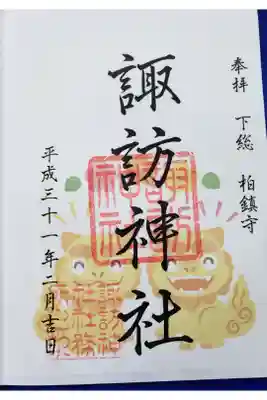 奉拝 下総 柏鎮守
諏訪神社
平成三十一年二月吉日